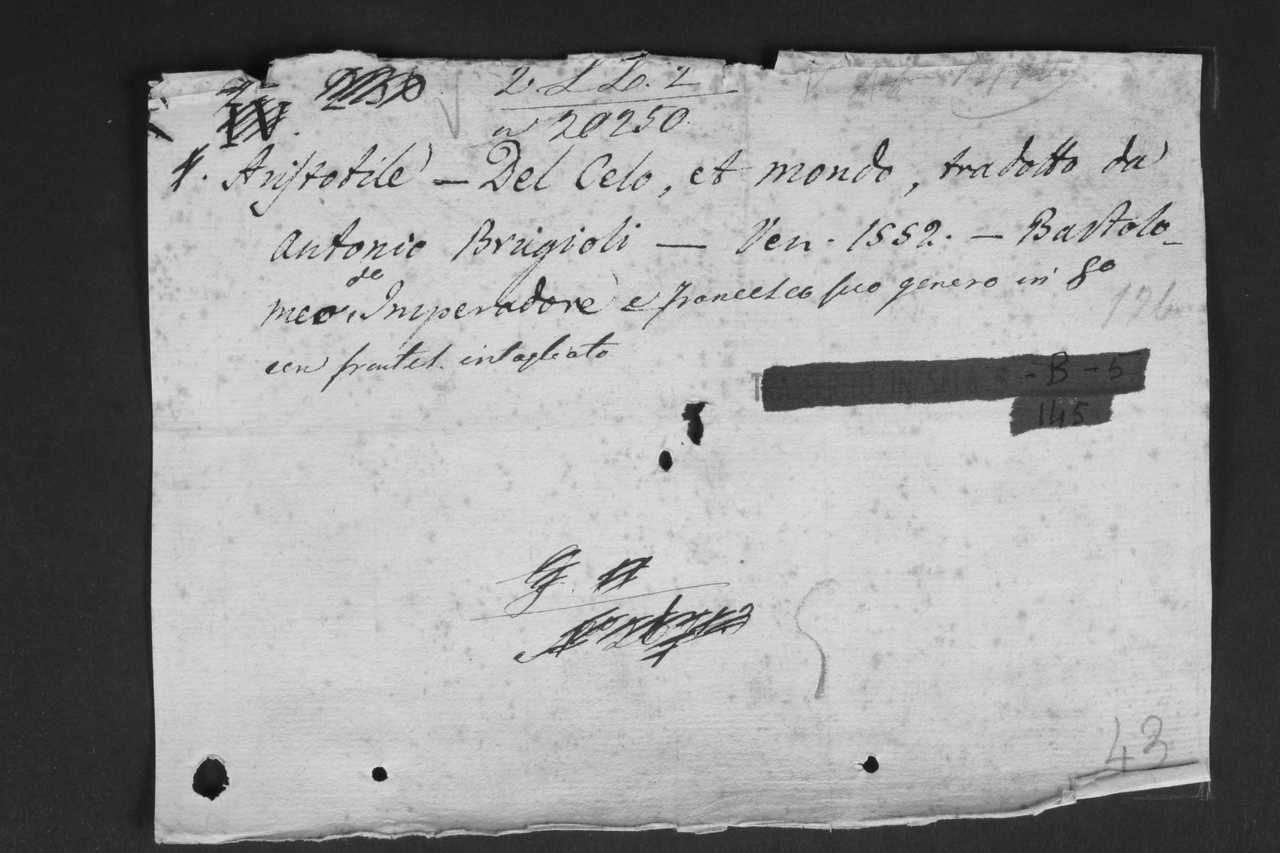 2. L Lo. 2
n 20250.
4. Aristotile – Del Celo, et mondo, tradotto da
Antonio Brugioli — Ven. 1552. – Bartolo-
meo do Imperadore e francesco suo genero in 8o
con frontes. intagliato
TRASFERITO IN SALA - B - 5
145
43